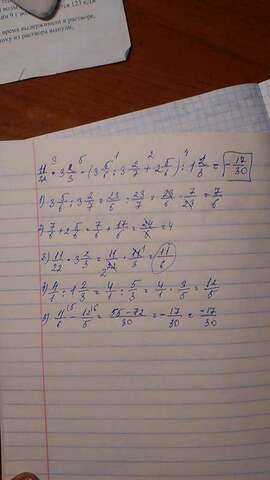 время выдержанной в растворе,
из раствора вынули,
11/22 · 3 2/3 - (3 5/6 : 3 2/7 + 2 5/6) : 1 2/3 = -17/30
1) 3 5/6 : 3 2/7 = 23/6 : 23/7 = 23/6 · 7/23 = 7/6
2) 7/6 + 2 5/6 = 7/6 + 17/6 = 24/6 = 4
3) 11/22 · 3 2/3 = 11/22 · 11/3 = 11/6
4) 4/1 : 1 2/3 = 4/1 : 5/3 = 4/1 · 3/5 = 12/5
5) 11/6 - 12/5 = 55-72/30 = -17/30 = -17/30